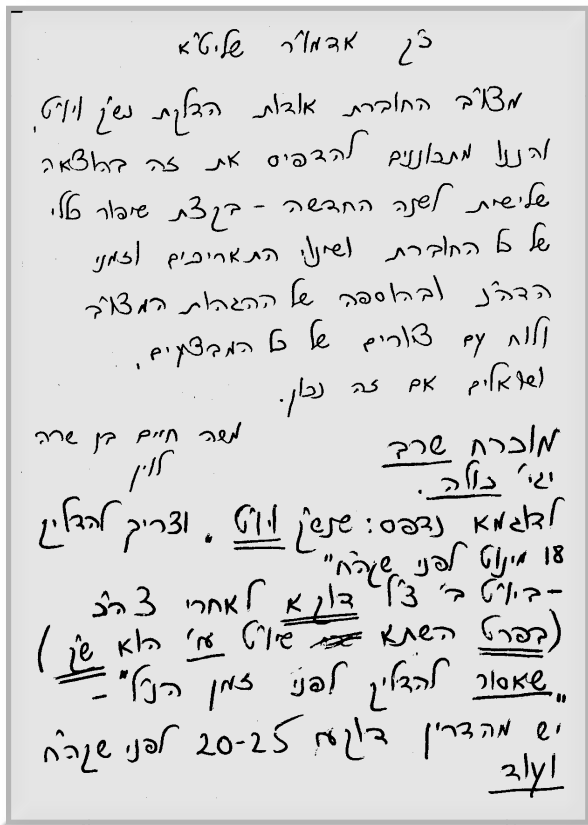 כ"ק אדמו"ר שליט"א
מצו"ב החוברת אודות הדלקת נש"ק ויו"ט,
והננו מתכוננים להדפיס את זה בהוצאה
שלישית לשנה החדשה - בקצת שיפור כללי
של כל החוברת ושינוי התאריכים וזמני
הדה"נ ובהוספה של ההגהות המצו"ב
ולוח עם ציורים של כל המבצעים,
ושואלים אם זה נכון.
משה חיים בן שרה
לוין
מוכרח שרב
יגי' כולה.
לדוגמא נדפס: שנש"ק ויו"ט. וצריך להדליק
18 מינוט לפני שקה"ח"
- ביו"ט ב' צ"ל דוקא לאחרי צה"כ
(בפרט השתא שיו"ט ש"ק הוא)
"שאסור להדליק לפני זמן הנ"ל" -
יש מהדרין דוקא 20-25 לפני שקה"ח
ועוד